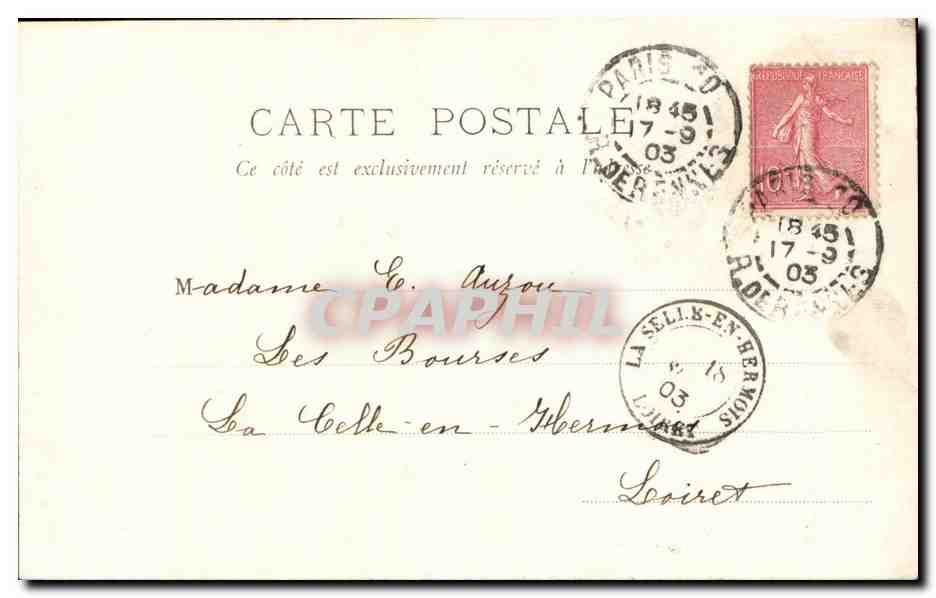 CARTE POSTALE
Ce côté est exclusivement réservé à l'
PARIS
18 45
17 -9
03
R. DE RENNES
RÉPUBLIQUE FRANÇAISE
10
18 45
17 -9
03
R. DE RENNES
Madame E. Auzou
Les Bourses
La Celle-en-Hermois
Loiret
LA SELLE-EN-HERMOIS
18
03
LOIRET
CPAPHIL